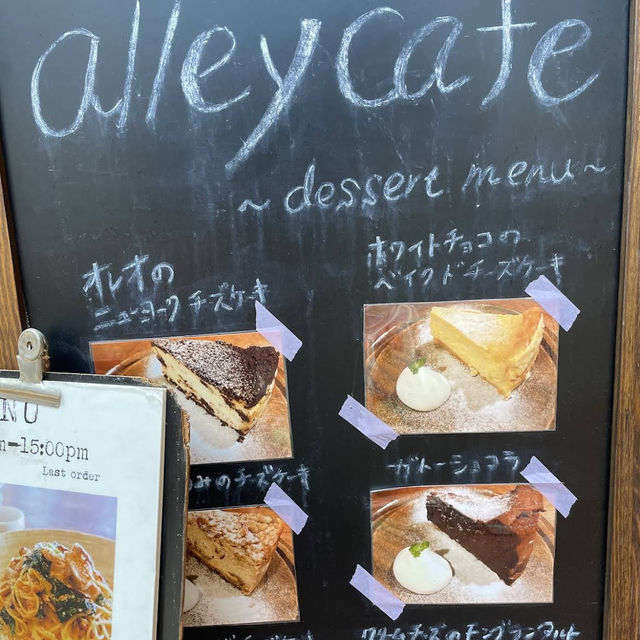 alley cafe
~ dessert menu ~
オレオの
ニューヨーク チーズケーキ
ホワイトチョコの
ベイクドチーズケーキ
NU
m-15:00pm
Last order
みのチーズケーキ
ガトーショコラ